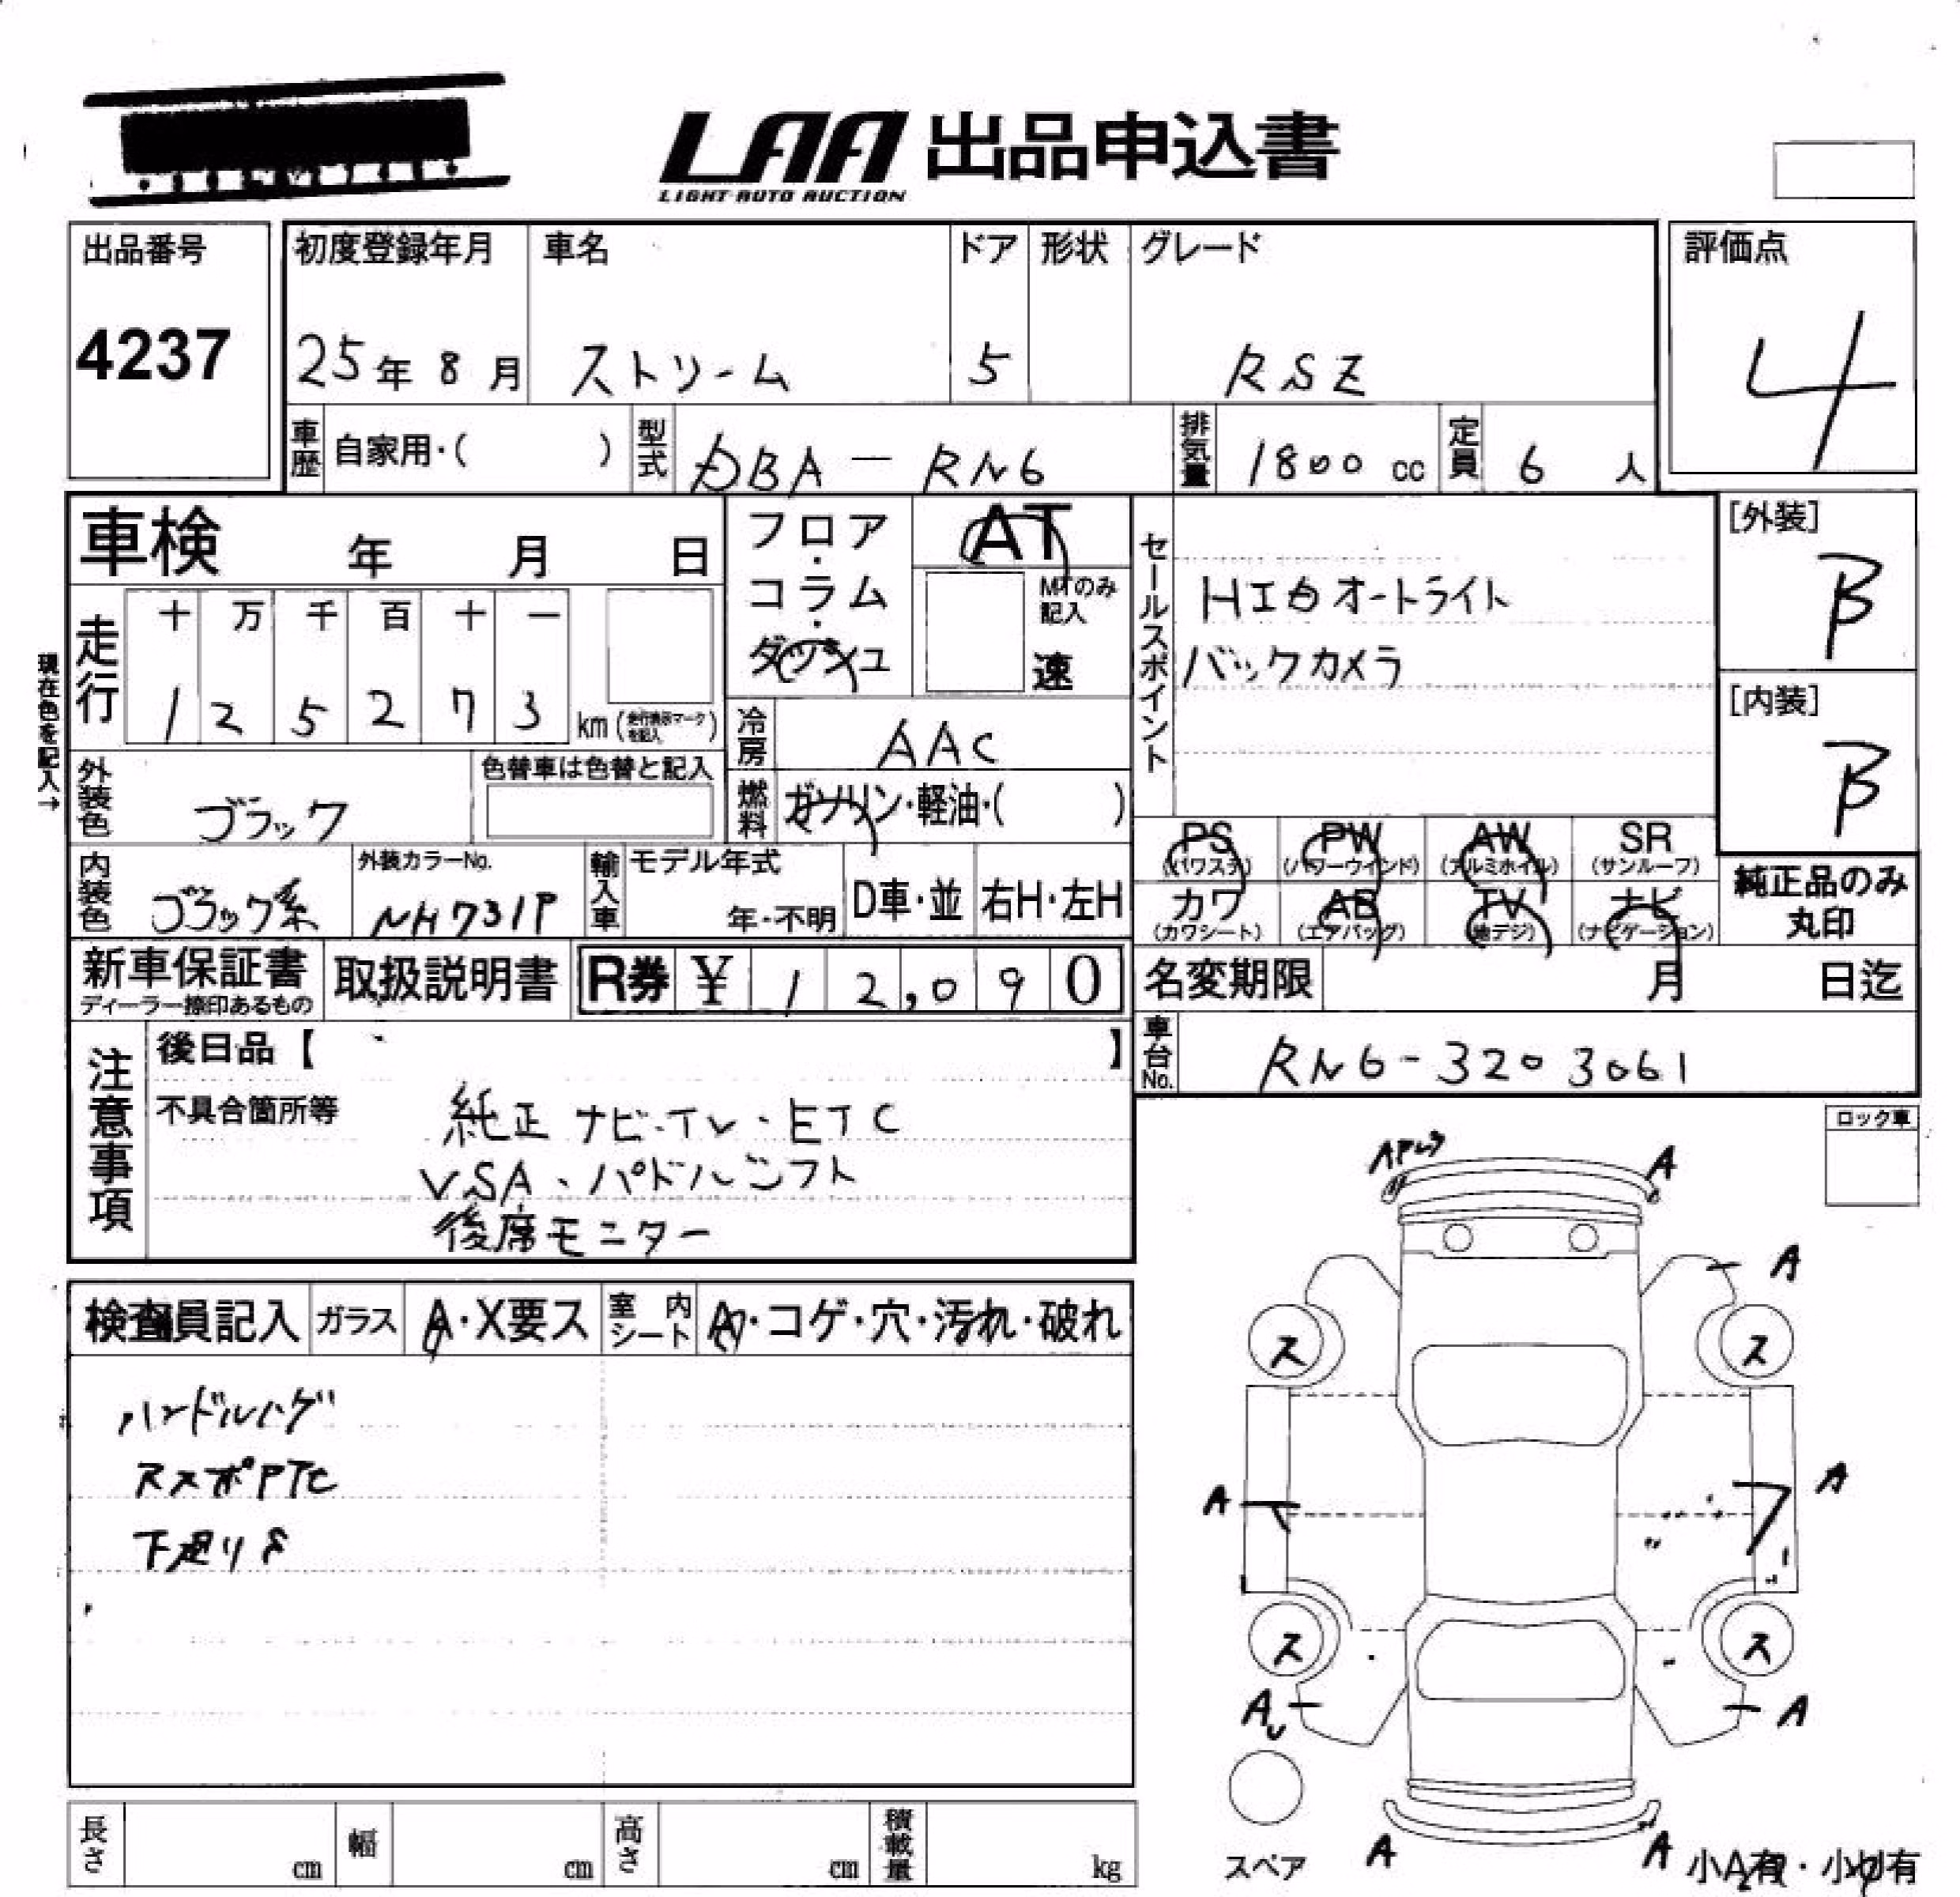 LAA 出品申込書
LIGHT AUTO AUCTION
出品番号
4237
初度登録年月
25年 8月
車名
ストリーム
ドア
5
形状
グレード
RSZ
評価点
4
車歴
自家用・( )
型式
DBA-RN6
排気量
1800 cc
定員
6 人
車検 年 月 日
フロア・コラム・ダッシュ
AT
MTのみ記入
速
セールスポイント
HID オートライト
バックカメラ
[外装]
B
[内装]
B
現在色を記入→
走行
十 万 千 百 十 一
1 2 5 2 7 3
km (走行表示マークを記入)
冷房
AAC
外装色
ブラック
色替車は色替と記入
燃料
ガソリン・軽油・( )
PS
(パワステ)
PW
(パワーウインド)
AW
(アルミホイル)
SR
(サンルーフ)
カワ
(カワシート)
AB
(エアバッグ)
TV
(地デジ)
ナビ
(ナビゲーション)
純正品のみ
丸印
内装色
ブラック系
外装カラーNo.
NH731P
輸入車
モデル年式
年・不明
D車・並
右H・左H
新車保証書
ディーラー捺印あるもの
取扱説明書
R券 ¥ 12,090
名変期限 月 日迄
車台No.
RN6-3203061
注意事項
後日品【 】
不具合箇所等
純正 ナビ・TV・ETC
VSA、パドルシフト
後席モニター
ロック車
検査員記入
ガラス
A・X要ス
室内シート
A・コゲ・穴・汚れ・破れ
ハンドルハゲ
下廻りS
A
A
ス
ス
A
A
ス
ス
A
A
A
A
スペア
小A有・小U有
長さ cm
幅 cm
高さ cm
積載量 kg